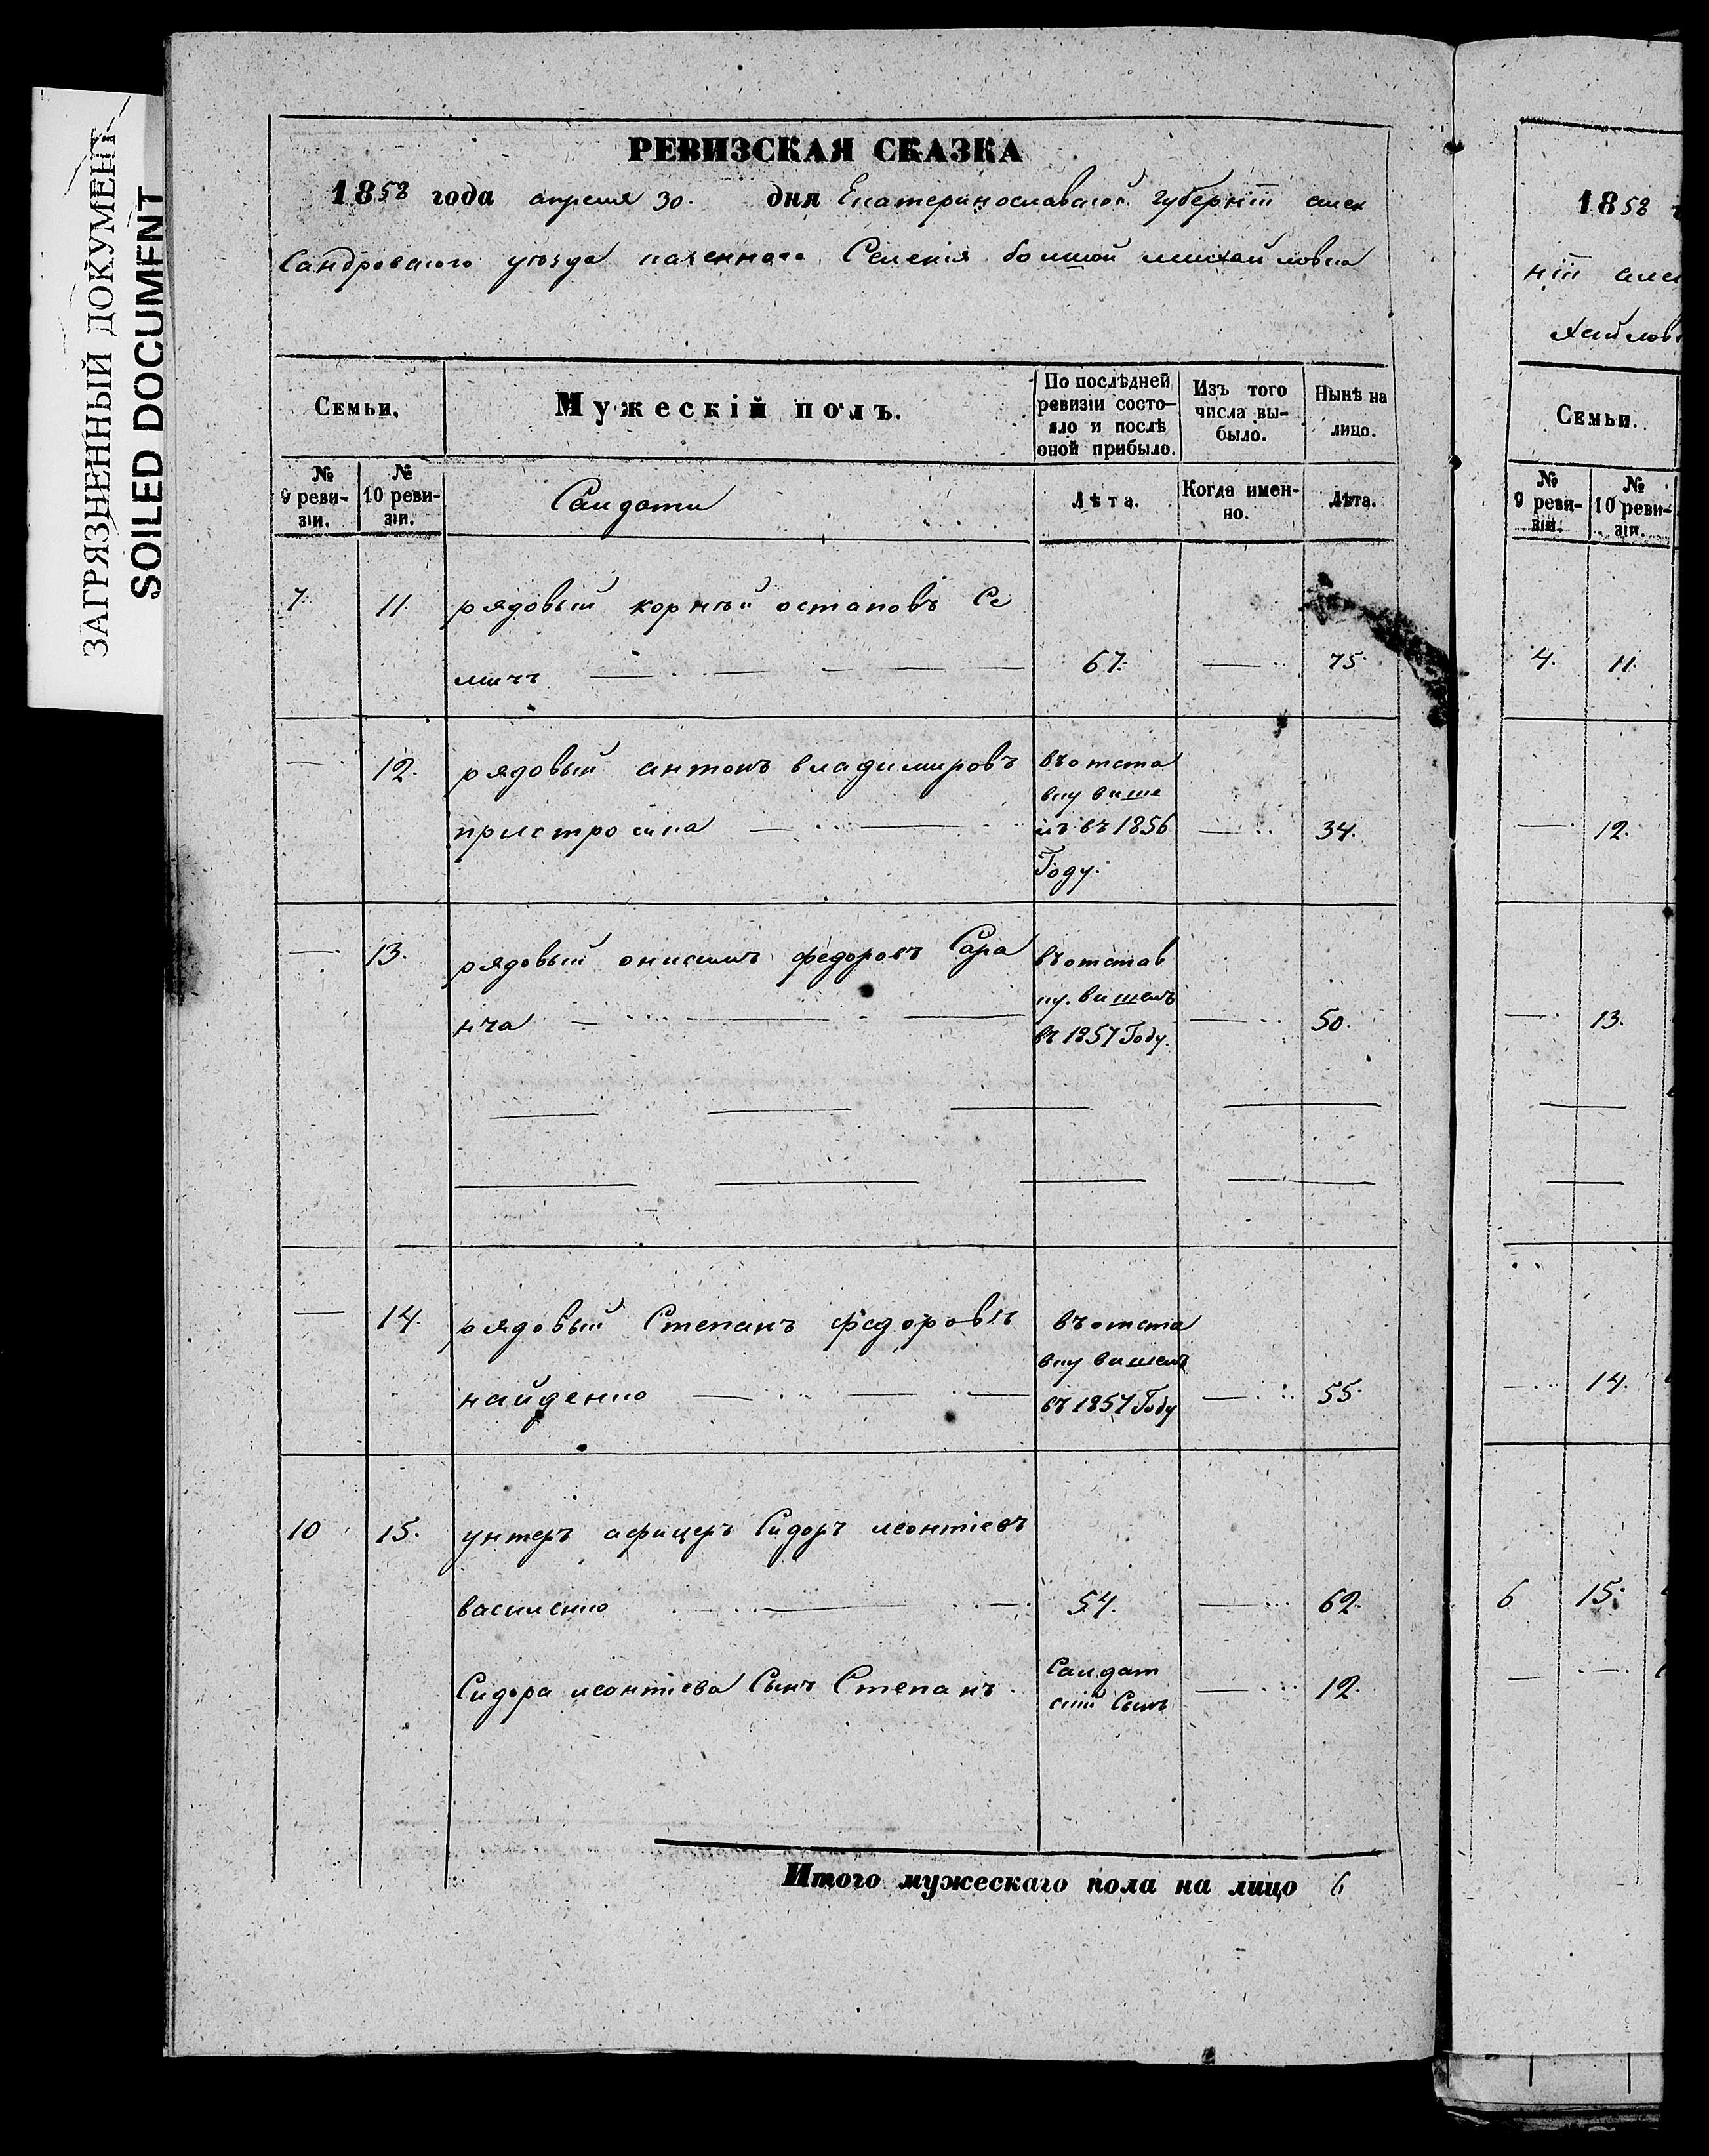 ЗАГРЯЗНЕННЫЙ ДОКУМЕНТ
SOILED DOCUMENT
РЕВИЗСКАЯ СКАЗКА
1858 года апреля 30. дня Екатеринославской губернiи алек
сандровского уезда казенного Селенiя большой михайловка
Семьи.
Мужескiй полъ.
По послѣдней ревизiи состо-
яло и послѣ оной прибыло.
Изъ того числа вы-
было.
Нынѣ на лицо.
№ 9 реви-
зiи.
№ 10 реви-
зiи.
Салдати
Лѣта.
Когда имен-
но.
Лѣта.
7. 11. рядовый корнѣй остаповъ Се
мичъ 67. 75.
12. рядовый антонъ владимировъ въ отста
вку више
пристросика лъ въ 1856 34.
Году.
13. рядовый онисимъ федоровъ Сара въ отстав
ку. вишелъ
нча въ 1857 Году. 50.
14. рядовый Степанъ федоровъ въ отста
вку вишелъ
найденко въ 1857 Году 55.
10 15. унтеръ афицеръ Сидоръ леонтiевъ
василенко 54. 62.
Сидора леонтiева Сынъ Степанъ. Салдат
скiй Сынъ 12.
Итого мужескаго пола на лицо 6
1858
нiи алек
хайлов
Семьи.
№ 9 реви-
зiи.
№ 10 реви-
зiи.
4. 11.
12.
13.
14.
6 15.